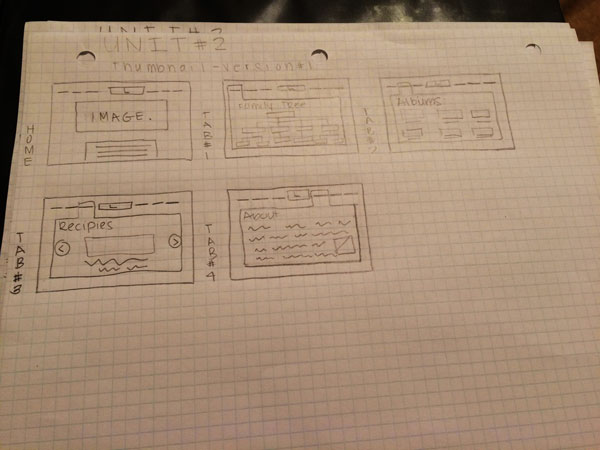 UNIT#2
UNIT#2
Thumbnail-version#1
HOME
IMAGE.
TAB#1
Family Tree
TAB#2
Albums
TAB#3
Recipies
TAB#4
About